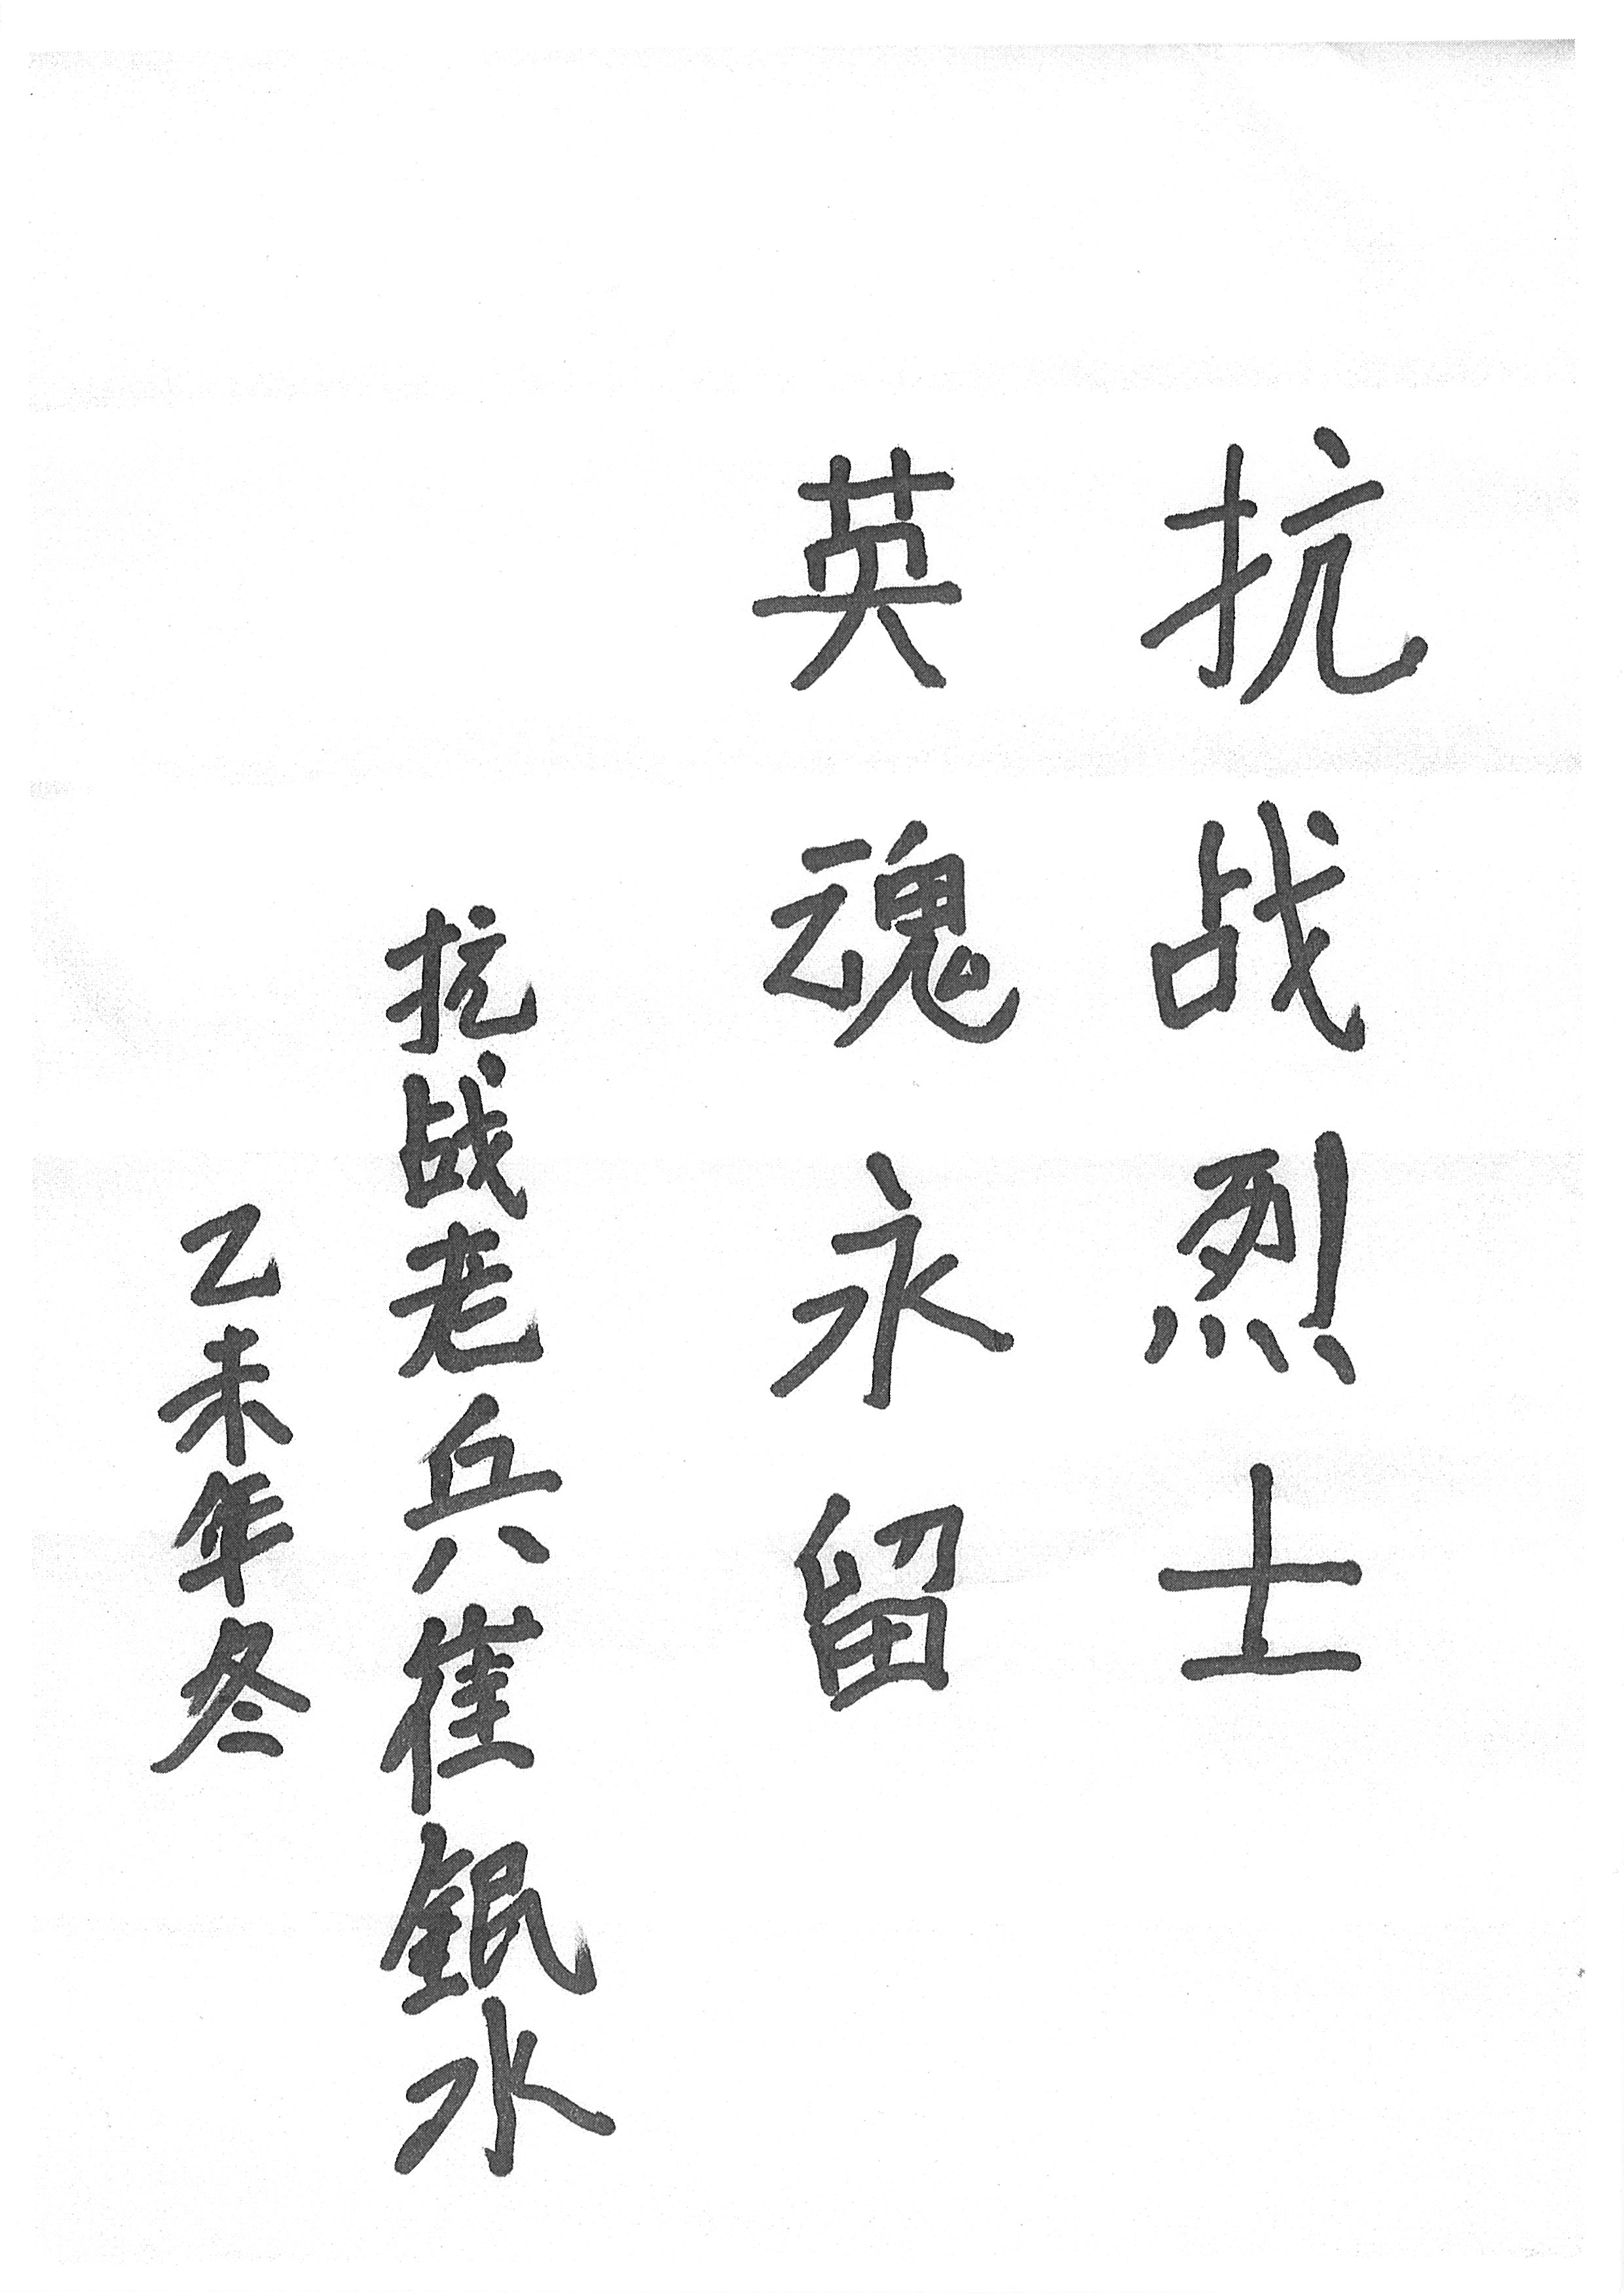 抗战烈士
英魂永留
抗战老兵崔银水
乙未年冬